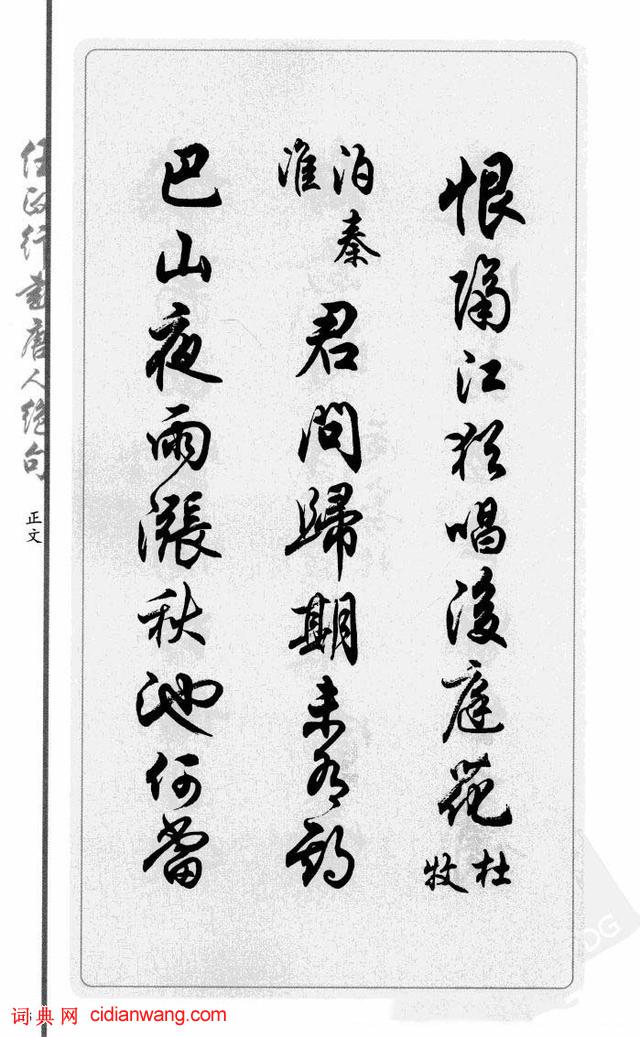 恨隔江犹唱後庭花
杜牧
泊秦淮
君問歸期未有期
巴山夜雨漲秋池何當
任政行書唐人絕句
正文
词典网 cidianwang.com